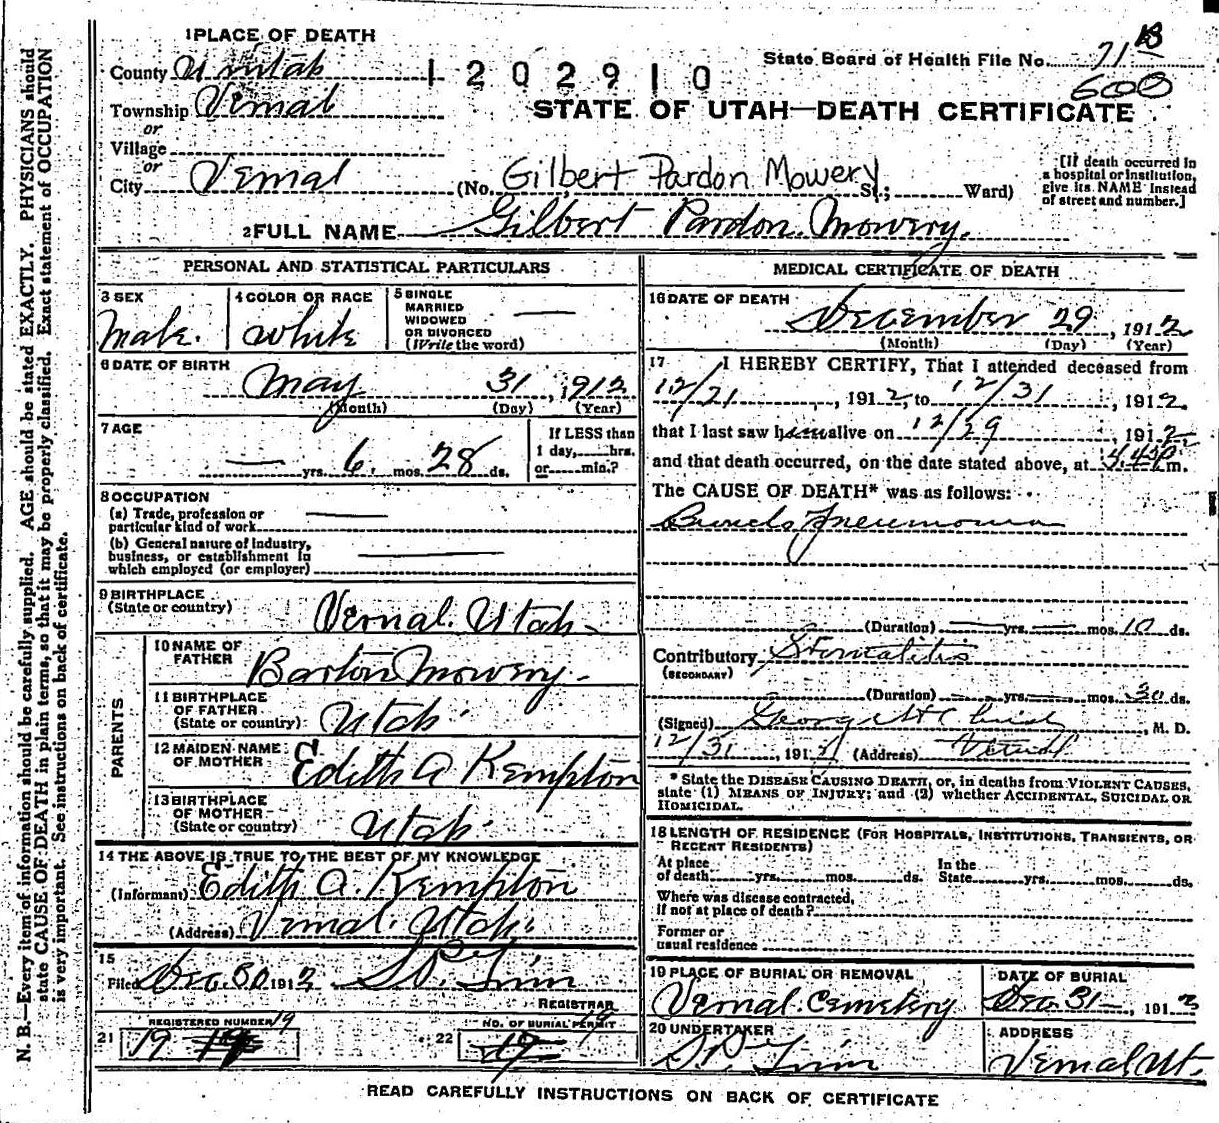 1 PLACE OF DEATH
County Uintah
1202910
State Board of Health File No. 71
600
Township Vernal
or
Village
or
City Vernal
STATE OF UTAH—DEATH CERTIFICATE
(No. Gilbert Pardon Mowery St.; Ward)
[If death occurred in a hospital or institution, give its NAME instead of street and number.]
2 FULL NAME Gilbert Pardon Mowery.
PERSONAL AND STATISTICAL PARTICULARS
3 SEX
Male.
4 COLOR OR RACE
White
5 SINGLE
MARRIED
WIDOWED
OR DIVORCED
(Write the word)
6 DATE OF BIRTH
May 31, 1912
(Month) (Day) (Year)
7 AGE
— yrs. 6. mos. 28 ds.
If LESS than
1 day, hrs.
or min.?
8 OCCUPATION
(a) Trade, profession or
particular kind of work
(b) General nature of Industry,
business, or establishment in
which employed (or employer)
9 BIRTHPLACE
(State or country)
Vernal. Utah-
PARENTS
10 NAME OF
FATHER
Barton Mowery.
11 BIRTHPLACE
OF FATHER
(State or country)
Utah.
12 MAIDEN NAME
OF MOTHER
Edith A Kempton
13 BIRTHPLACE
OF MOTHER
(State or country)
Utah.
14 THE ABOVE IS TRUE TO THE BEST OF MY KNOWLEDGE
(Informant) Edith A. Kempton
(Address) Vernal. Utah.
15
Filed Dec. 30 1912
REGISTRAR
REGISTERED NUMBER 19
21 19
NO. OF BURIAL PERMIT 19
22
MEDICAL CERTIFICATE OF DEATH
16 DATE OF DEATH
December 29, 1912
(Month) (Day) (Year)
17 I HEREBY CERTIFY, That I attended deceased from
12/21, 1912, to 12/31, 1912.
that I last saw him alive on 12/29, 1912,
and that death occurred, on the date stated above, at m.
The CAUSE OF DEATH* was as follows:
Pneumonia
(Duration) — yrs. — mos. 10 ds.
Contributory Stomatitis
(SECONDARY)
(Duration) — yrs. — mos. 30 ds.
(Signed) George H Christy, M. D.
12/31, 191 (Address) Vernal
* State the DISEASE CAUSING DEATH, or, in deaths from VIOLENT CAUSES,
state (1) MEANS OF INJURY; and (2) whether ACCIDENTAL, SUICIDAL OR
HOMICIDAL.
18 LENGTH OF RESIDENCE (FOR HOSPITALS, INSTITUTIONS, TRANSIENTS, OR
RECENT RESIDENTS)
At place
of death yrs. mos. ds.
In the
State yrs. mos. ds.
Where was disease contracted,
if not at place of death?
Former or
usual residence
19 PLACE OF BURIAL OR REMOVAL
Vernal. Cemetery
DATE OF BURIAL
Dec. 31—, 1912
20 UNDERTAKER
ADDRESS
Vernal Ut.
READ CAREFULLY INSTRUCTIONS ON BACK OF CERTIFICATE
N. B.—Every item of information should be carefully supplied. AGE should be stated EXACTLY. PHYSICIANS should
state CAUSE OF DEATH in plain terms, so that it may be properly classified. Exact statement of OCCUPATION
is very important. See instructions on back of certificate.